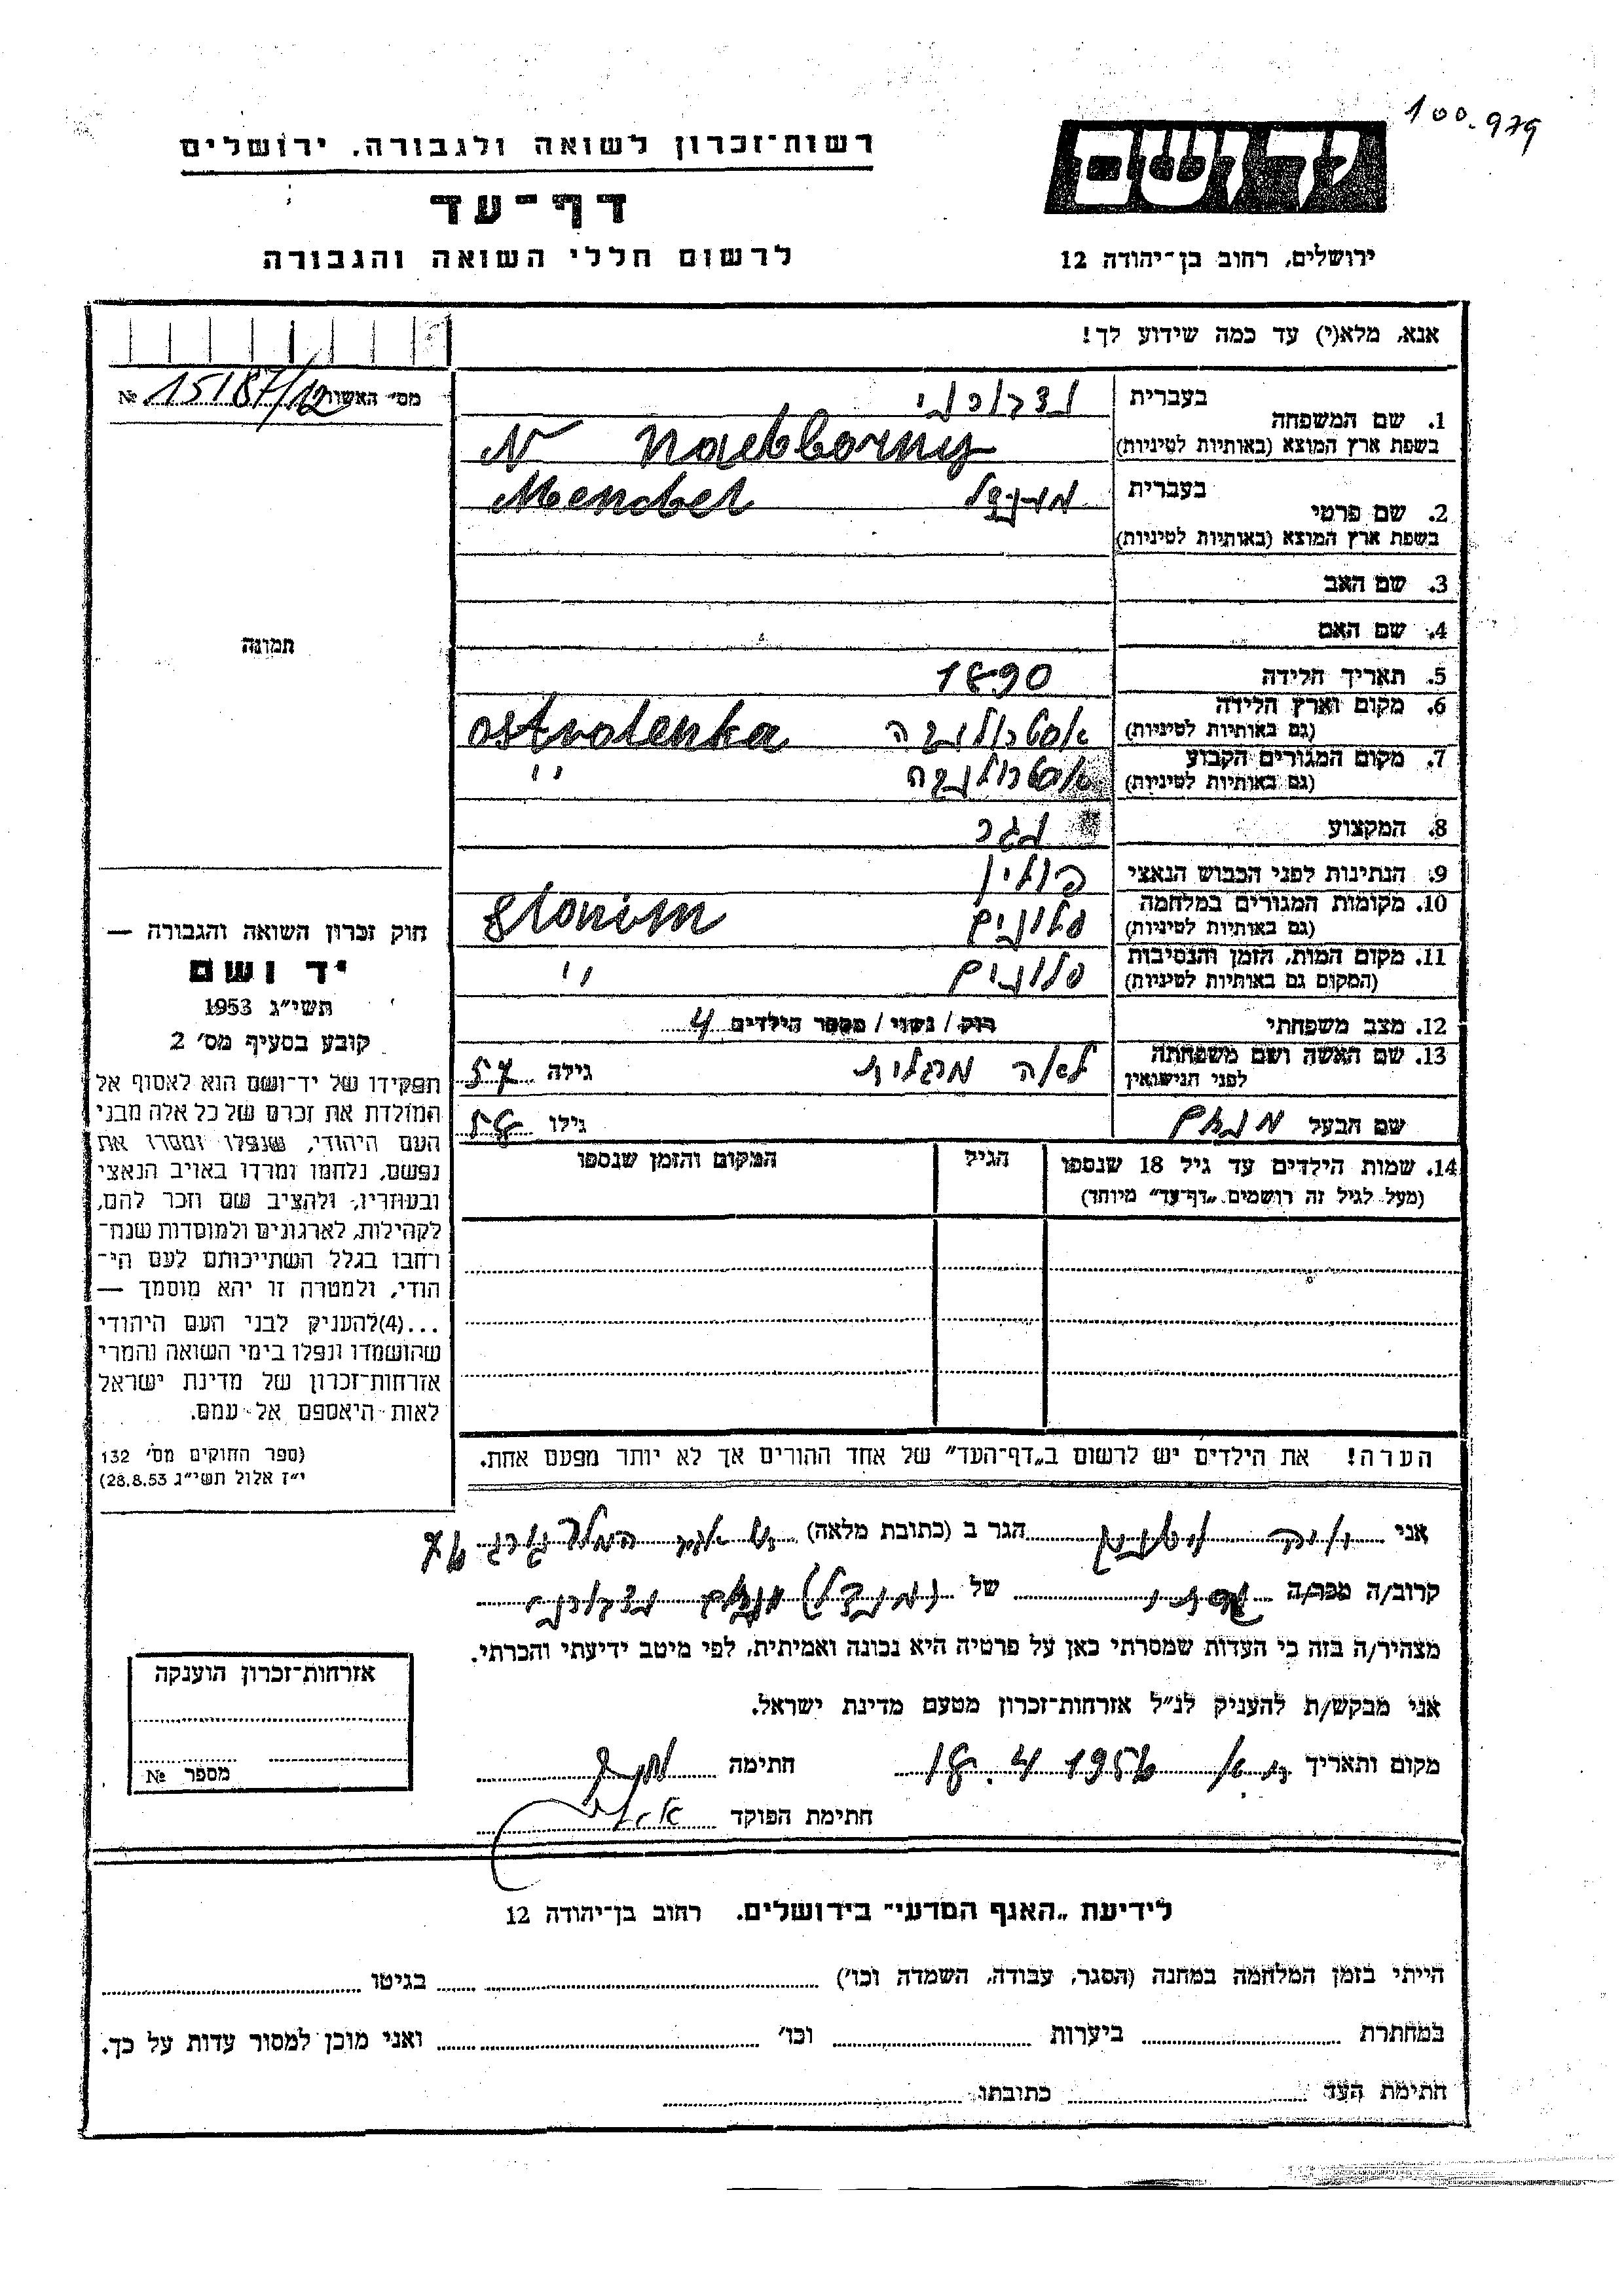 100.979
יד ושם
ירושלים, רחוב בן־יהודה 12
רשות־זכרון לשואה ולגבורה, ירושלים
דף־עד
לרשום חללי השואה והגבורה
אנא, מלא(י) עד כמה שידוע לך!
מס׳ האשור 15187/12 №
תמונה
חוק זכרון השואה והגבורה —
יד ושם
תשי״ג 1953
קובע בסעיף מס׳ 2
תפקידו של יד־ושם הוא לאסוף אל
המולדת את זכרם של כל אלה מבני
העם היהודי, שנפלו ומסרו את
נפשם, נלחמו ומרדו באויב הנאצי
ובעוזריו, ולהציב שם וזכר להם,
לקהילות, לארגונים ולמוסדות שנח־
רחבו בגלל השתייכותם לעם הי־
הודי, ולמטרה זו יהא מוסמך —
...(4)להעניק לבני העם היהודי
שהושמדו ונפלו בימי השואה והמרי
אזרחות־זכרון של מדינת ישראל
לאות היאספם אל עמם.
(ספר החוקים מס׳ 132
י״ז אלול תשי״ג 28.8.53)
1. שם המשפחה
בעברית נדבורני
בשפת ארץ המוצא (באותיות לטיניות) N nadborny
2. שם פרטי
בעברית מענדל Mendel
בשפת ארץ המוצא (באותיות לטיניות)
3. שם האב
4. שם האם
5. תאריך הלידה 1890
6. מקום וארץ הלידה אוסטרולנקה ostrolenka
(גם באותיות לטיניות)
7. מקום המגורים הקבוע אוסטרולנקה ״
(גם באותיות לטיניות)
8. המקצוע נגר
9. הנתינות לפני הכבוש הנאצי פולין
10. מקומות המגורים במלחמה סלונים Slonim
(גם באותיות לטיניות)
11. מקום המות, הזמן והנסיבות סלונים ״
(המקום גם באותיות לטיניות)
12. מצב משפחתי רוק / נשוי / מספר הילדים 4
13. שם האשה ושם משפחתה לאה מרגלית גילה 57
לפני הנישואין
שם הבעל מנחם גילו 58
14. שמות הילדים עד גיל 18 שנספו הגיל המקום והזמן שנספו
(מעל לגיל זה רושמים „דף־עד״ מיוחד)
הערה! את הילדים יש לרשום ב„דף־העד״ של אחד ההורים אך לא יותר מפעם אחת.
אני הגר ב (כתובת מלאה) המלך ג׳ורג׳
קרוב/ה מכר/ה של (מנדל) מנחם נדבורני
מצהיר/ה בזה כי העדות שמסרתי כאן על פרטיה היא נכונה ואמיתית, לפי מיטב ידיעתי והכרתי.
אני מבקש/ת להעניק לנ״ל אזרחות־זכרון מטעם מדינת ישראל.
מקום ותאריך ת״א 18.4 1956 חתימה
חתימת הפוקד
אזרחות־זכרון הוענקה
מספר №
לידיעת „האגף המדעי״ בירושלים. רחוב בן־יהודה 12
הייתי בזמן המלחמה במחנה (הסגר, עבודה, השמדה וכו׳) בגיטו
במחתרת ביערות וכו׳ ואני מוכן למסור עדות על כך.
חתימת העד כתובתו